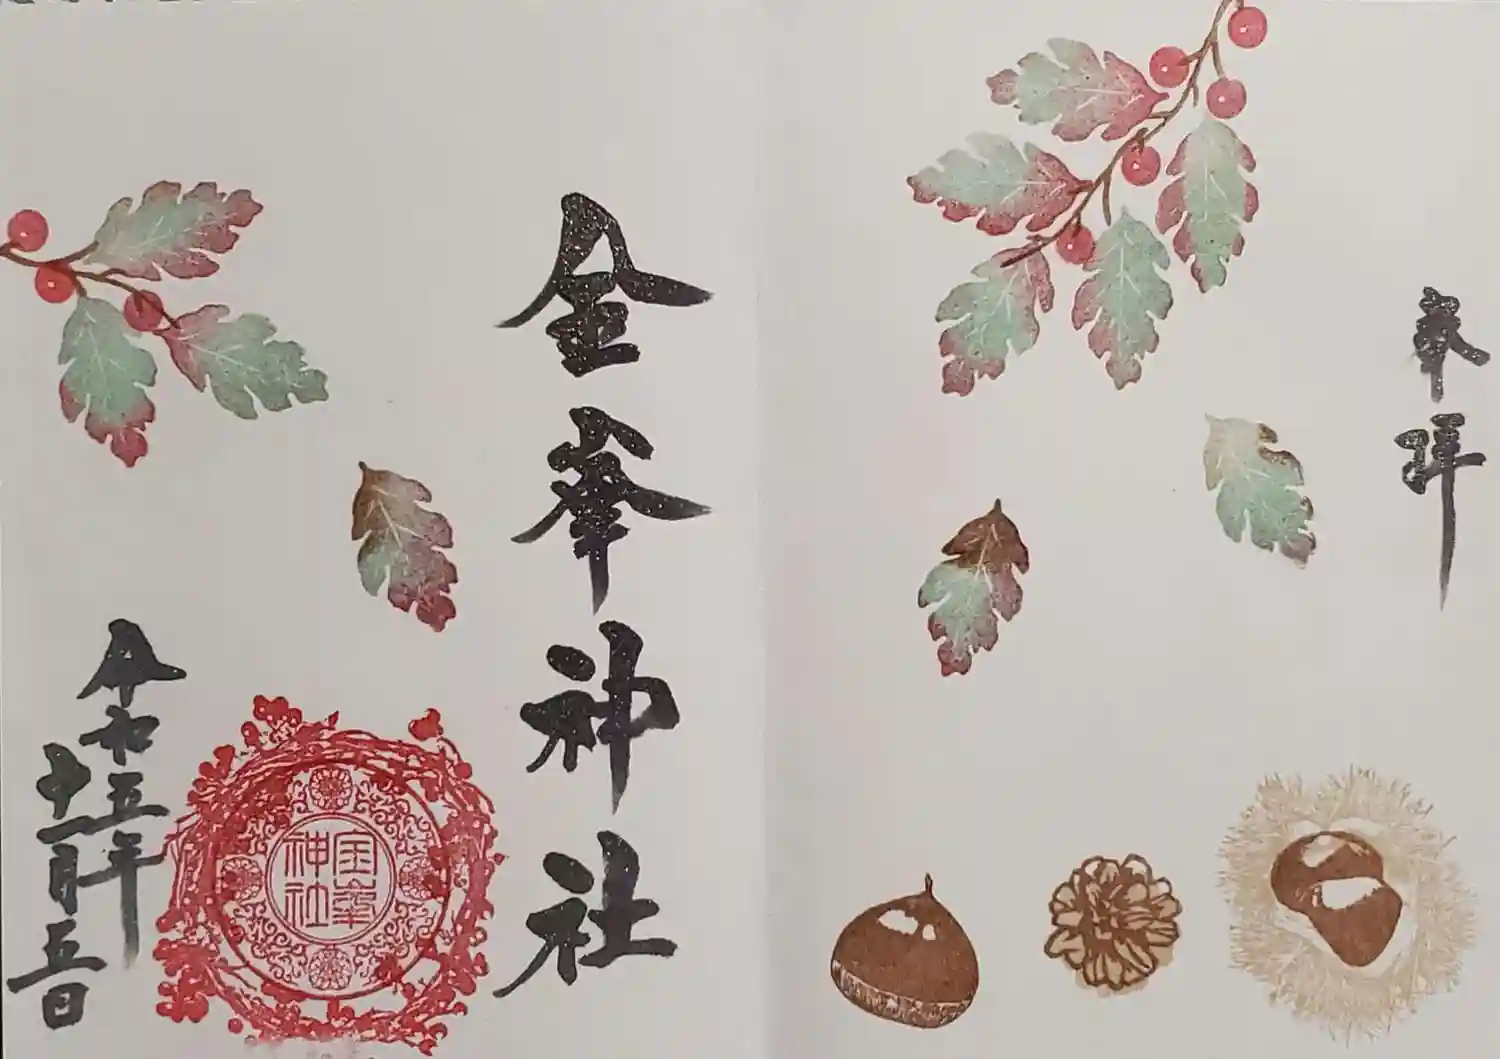 奉拝
金峯神社
金峯神社
令和五年
十一月五日